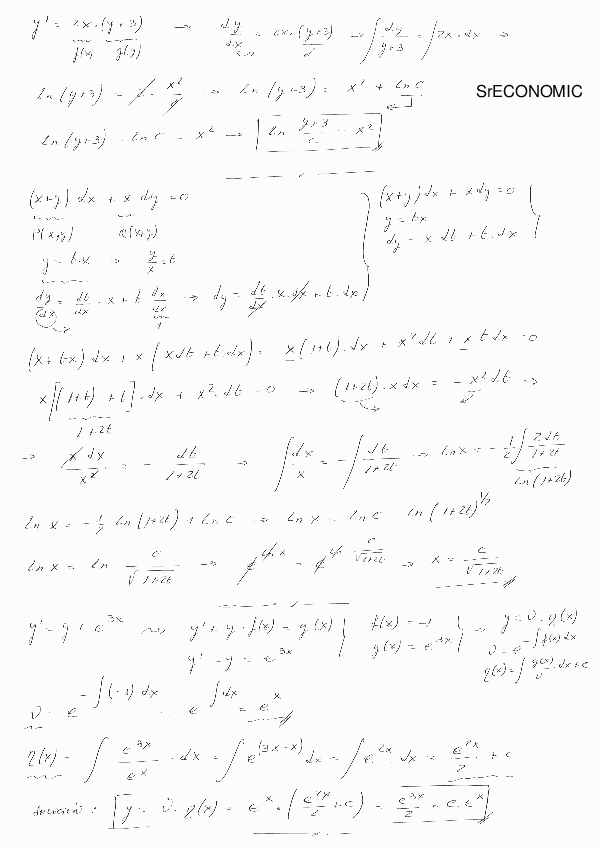 y' = 2x·(y+3) → dy/dx = 2x·(y+3) → ∫ dy/(y+3) = ∫ 2x·dx ⇒
f(x) g(y)
ln(y+3) = 2·x²/2 → ln(y+3) = x² + ln c
SrECONOMIC
ln(y+3) - ln c = x² → ln (y+3)/c = x²
(x+y) dx + x dy = 0
P(x,y) Q(x,y)
y = t·x → y/x = t
dy/dx = dt/dx · x + t · dx/dx → dy = dt/dx · x · dx + t·dx
1
(x+y) dx + x dy = 0
y = tx
dy = x dt + t·dx
(x+tx) dx + x(x dt + t·dx) = x(1+t)·dx + x² dt + x t dx = 0
x[(1+t) + t]·dx + x²·dt = 0 → (1+2t)·x dx = - x² dt →
1+2t
→ x dx/x² = - dt/(1+2t) → ∫ dx/x = -∫ dt/(1+2t) → ln x = - 1/2 ∫ 2dt/(1+2t)
ln(1+2t)
ln x = - 1/2 ln(1+2t) + ln c → ln x = ln c - ln(1+2t)^1/2
ln x = ln c/√(1+2t) → e^(ln x) = e^(ln c/√(1+2t)) → x = c/√(1+2t)
y' = y + e^3x → y' + y·f(x) = g(x)
y' - y = e^3x
f(x) = -1
g(x) = e^3x
→ y = υ·η(x)
υ = e^(-∫f(x)dx)
η(x) = ∫ g(x)/υ · dx + c
υ = e^(-∫(-1)·dx) = e^(∫dx) = e^x
η(x) = ∫ e^3x/e^x · dx = ∫ e^(3x-x) dx = ∫ e^2x dx = e^2x/2 + c
solución: y = υ·η(x) = e^x·(e^2x/2 + c) = e^3x/2 + c·e^x